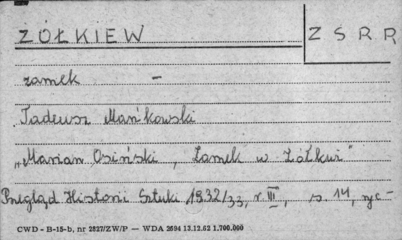 ŻÓŁKIEW
ZSRR
zamek –
Tadeusz Mańkowski
„Marian Osiński, Zamek w Żółkwi"
Przegląd Historii Sztuki 1932/33, r. III, s. 14, ryc –
CWD - B-15-b, nr 2827/ZW/P — WDA 2694 13.12.62 1.700.000